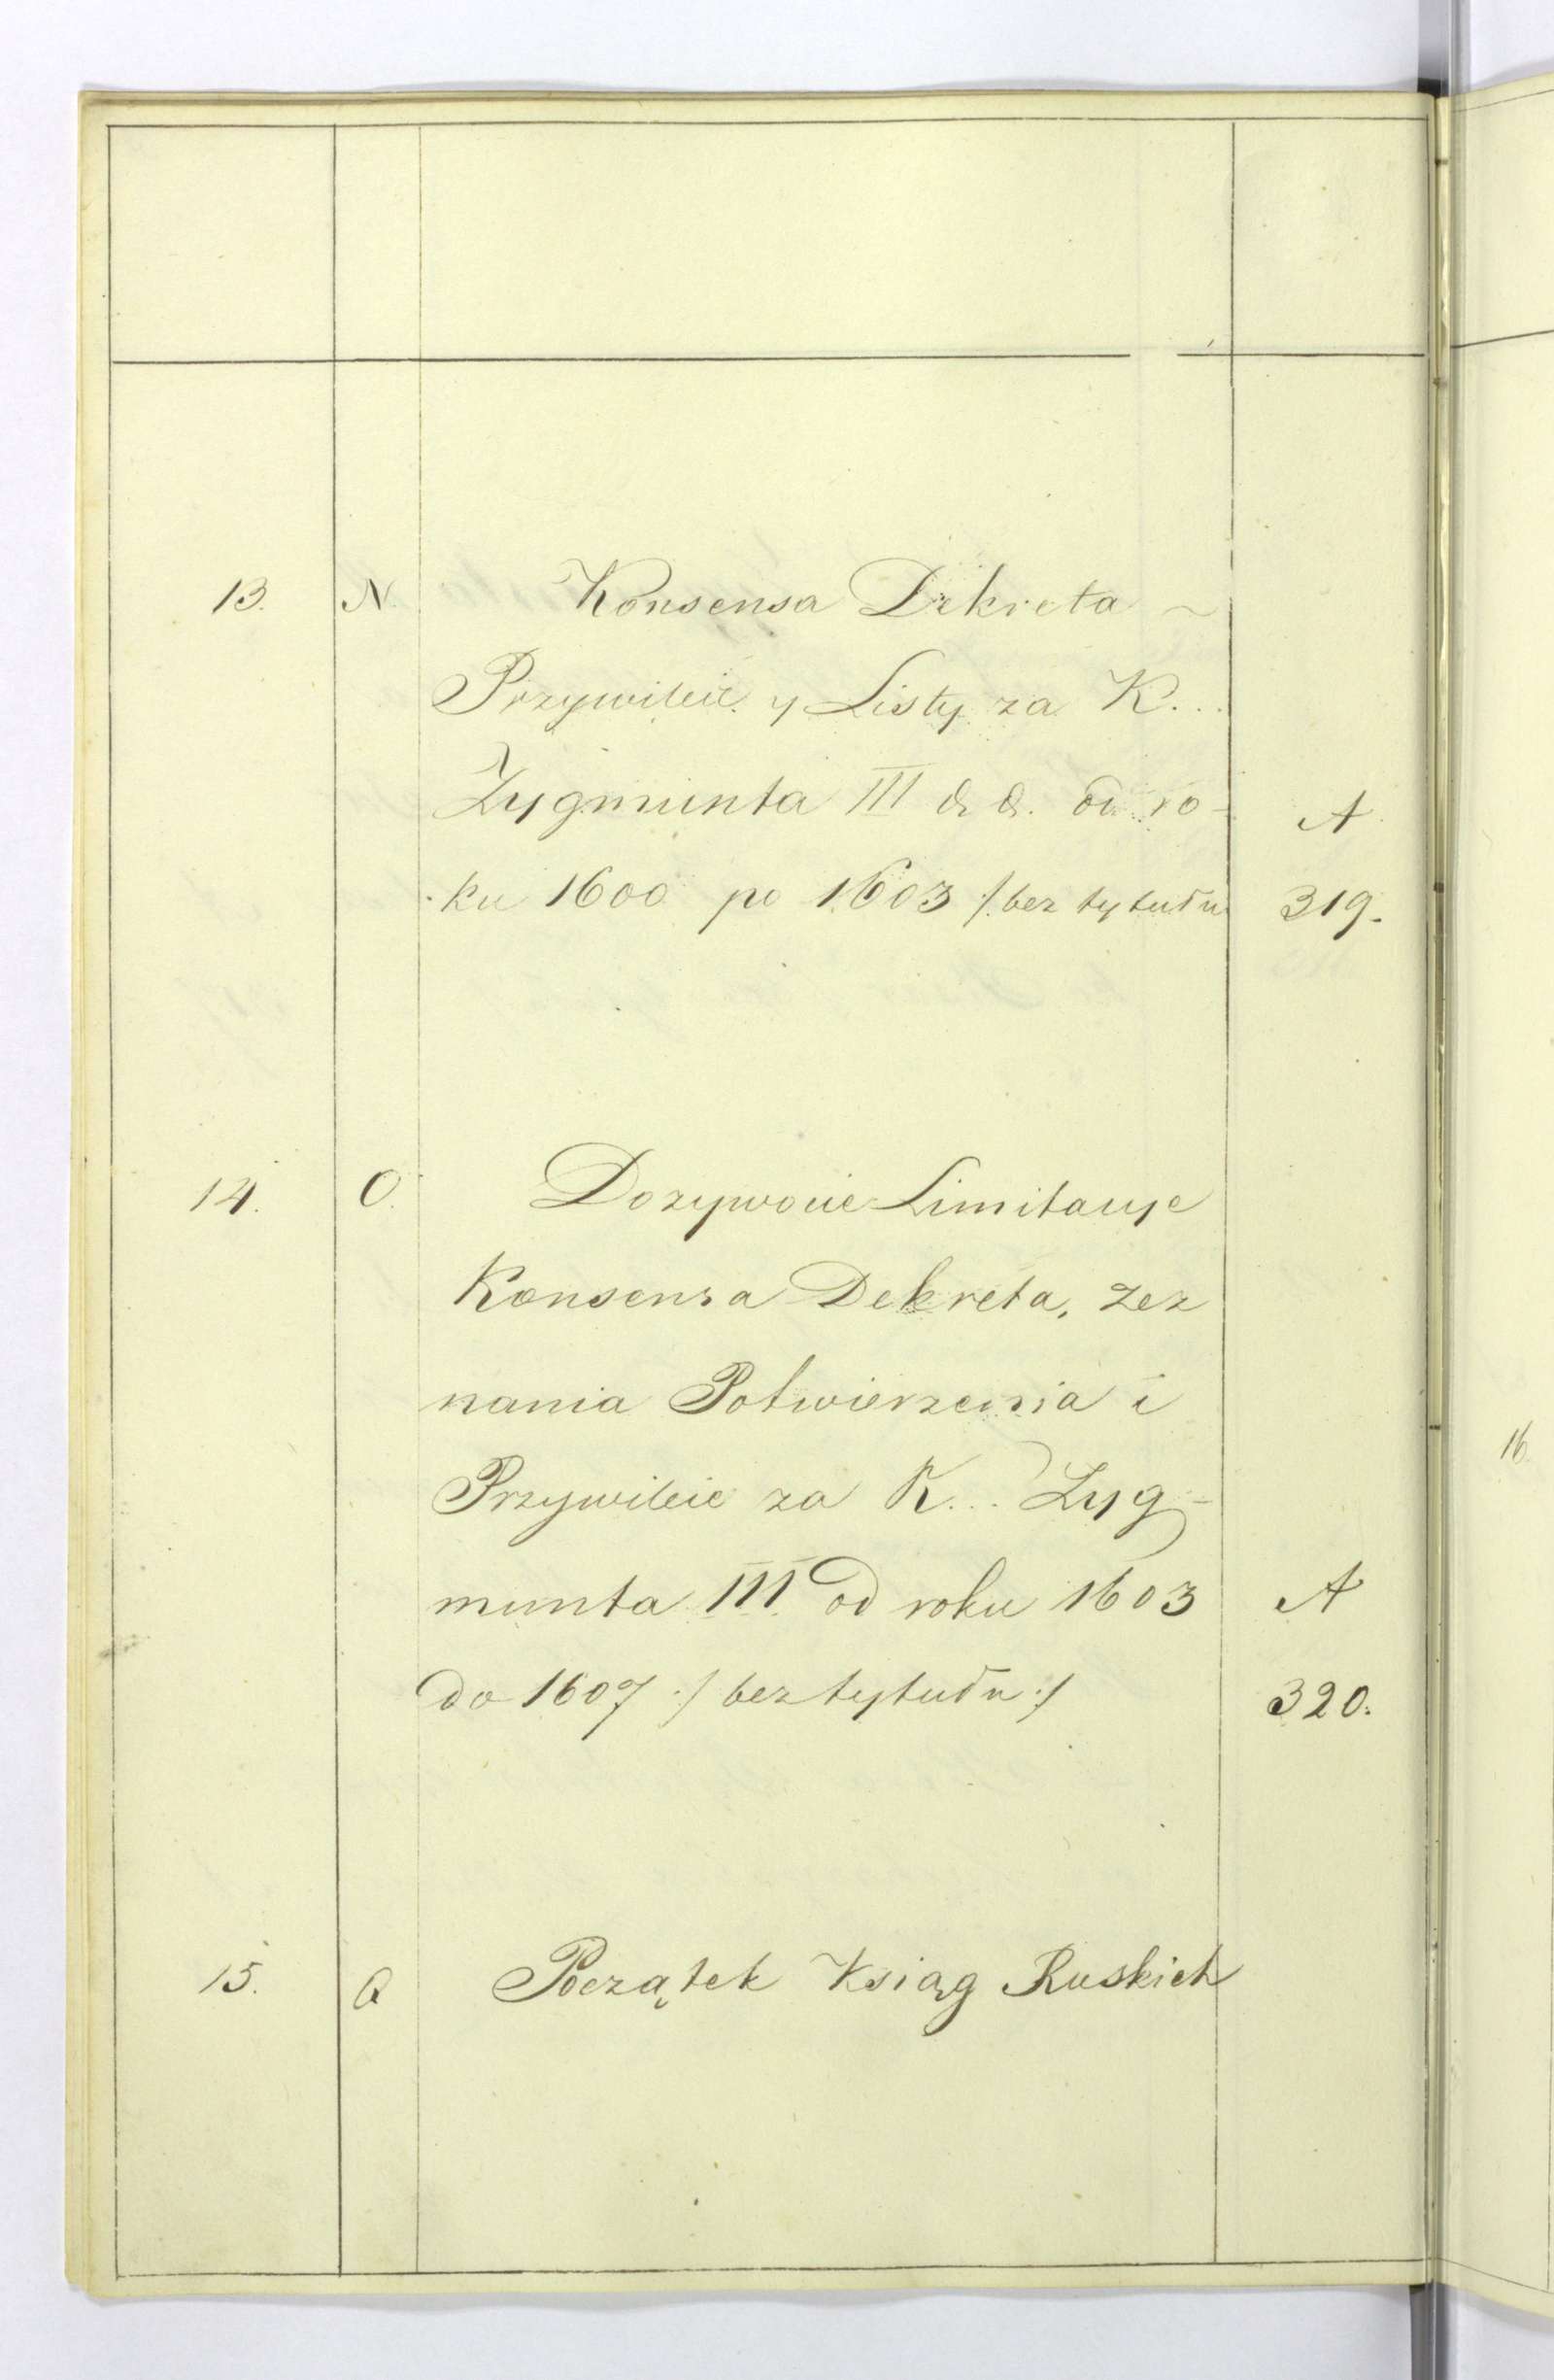 13. N. Konsensa Dekreta ~
Przywileie y Listy za K...
Zygmunta III & &. od ro- A
ku 1600 po 1603 /: bez tytułu 319.
14. O. Dozywocie Limitacye
Konsensa Dekreta, Zez
nania Potwierzenia i
Przywileie za K... Zyg-
munta III od roku 1603 A
do 1607 :/ bez tytułu :/ 320.
15. Q Początek Ksiąg Ruskich
16.